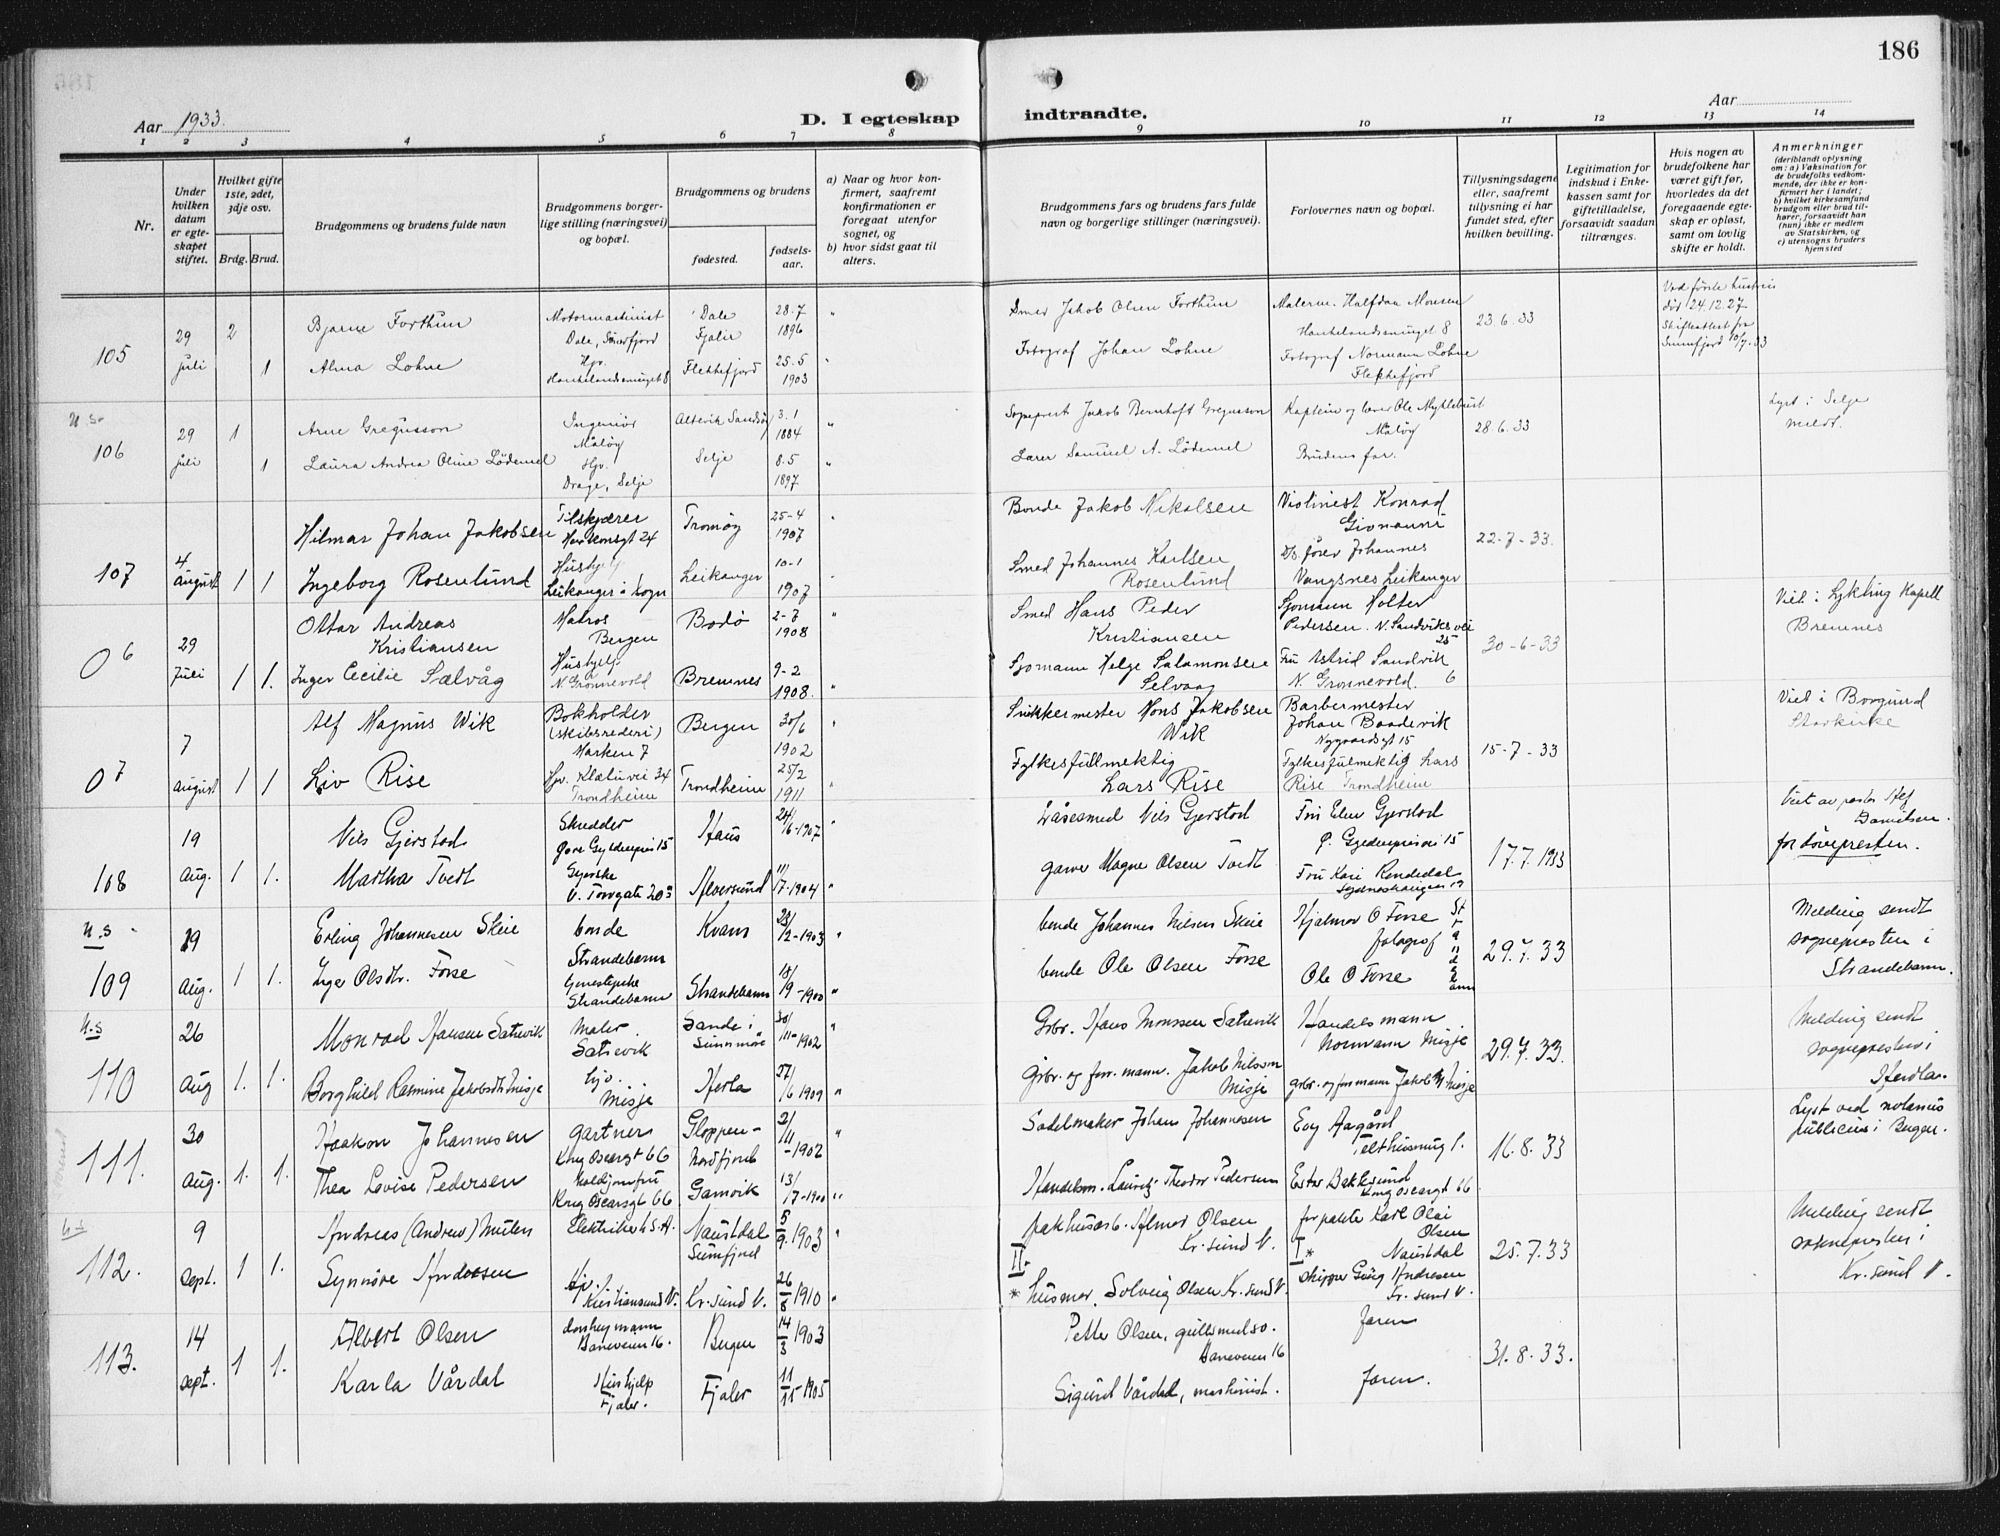 186
Aar 1933.
D. I egteskap indtraadte.
Aar
1 2 3 4 5 6 7 8 9 10 11 12 13 14
Nr.
Under hvilken datum er egteskapet stiftet.
Hvilket gifte 1ste, 2det, 3dje osv.
Brdg. Brud.
Brudgommens og brudens fulde navn
Brudgommens borgerlige stilling (næringsvei) og bopæl.
Brudgommens og brudens
fødested.
fødselsaar.
a) Naar og hvor konfirmert, saafremt konfirmationen er foregaat utenfor sognet, og
b) hvor sidst gaat til alters.
Brudgommens fars og brudens fars fulde navn og borgerlige stillinger (næringsvei).
Forlovernes navn og bopæl.
Tillysningsdagene eller, saafremt tillysning ei har fundet sted, efter hvilken bevilling.
Legitimation for indskud i Enkekassen samt for giftetilladelse, forsaavidt saadan tiltrænges.
Hvis nogen av brudefolkene har været gift før, hvorledes da det foregaaende egteskap er opløst, samt om lovlig skifte er holdt.
Anmerkninger
(deriblandt oplysning om: a) Vaksination for de brudefolks vedkommende, der ikke er konfirmert her i landet; b) hvilket kirkesamfund brudgom eller brud tilhører, forsaavidt han (hun) ikke er medlem av Statskirken, og c) utensogns bruders hjemsted
105
29 juli
2
Bjarne Forthun
Motormaskinist
Dale, Sunnfjord
Dale Fjaler
28.7 1896
Smed Jakob Olsen Forthun
Malerm. Halfdan Monsen
Haukelandssmuget 8
23.6.33
død 24.12.27
1
Alma Lohne
Hjv.
Haukelandssmuget 8
Flekkefjord
25.5 1903
Fotograf Johan Lohne
Fotograf Normann Lohne
Flekkefjord
106
29 juli
1
Arne Gregusson
Ingeniør
Måløy
3.1 1884
Sogneprest Jakob Bernhoft Gregusson
Kaptein og lærer Ole Myklebust
Måløy
28.6.33
Lyst i Selje
meldt.
1
Laura Andrea Oline Lødemel
Hjv.
Drage, Selje
Selje
8.5 1897
Lærer Samuel A. Lødemel
Brudens far.
107
4 august
1 1
Hilmar Johan Jakobsen
Tilskjærer
Tromøy
25-4 1907
Bonde Jakob Nikolsen
Violinist Konrad
Giovanni
22-7-33.
Ingeborg Rosenlund
Hushjelp
Leikanger i Sogn
Leikanger
10-1 1907
Smed Johannes Karlsen
Rosenlund
Johannes
Vangsnes Leikanger
06
29 Juli
1 1.
Ottar Andreas
Kristiansen
Matros
Bergen
Bodö
2-7 1908
Smed Hans Peder
Kristiansen
Sjömann Holter
Pedersen. N. Sandviksvei
25
30-6-33
Viet i Lykling Kapell
Bremnes
Inger Cecilie Sælvåg
Hushjelp
N. Grönnevold
Bremnes
9-2 1908.
Sjömann Helge Salamonsen
Selvaag
Fru Astrid Sandvik
N. Grönnevold. 6
07
7 august
1 1
Alf Magnus Wik
Bokholder
(skibsrederi)
Marken 7
Bergen
30/6 1902
Snikkermester Mons Jakobsen
Wik
Barbermester
Johan Baadsvik
Nygaardsgt 15
15-7-33
Viet i Borgund
Stavkirke
Liv Rise
Trondheim
Trondheim
25/2 1911
Fylkesfullmektig
Lars Rise
Fylkesfulmektig Lars
Rise Trondheim
108
19 Aug.
1 1.
Nils Gjerstad
Skredder
Haus
24/6-1907
Låsesmed Nils Gjerstad
Fru Elen Gjerstad
17.7.1933
Danielsen.
for døvepresten.
Martha Tvedt
Syerske
Alversund
Garver Magne Olsen Tvedt
Fru Kari Rendedal
109
u.s
19 Aug.
1 1.
Erling Johannesen Skeie
bonde
Strandebarm
Kvam
23/12-1903
bonde Johannes Nilsen Skeie
Hjalmar O Forse
fotograf
29.7.33
Melding sendt
sognepresten i
Strandebarm.
Inga Olsdtr. Forse
Strandebarm
Strandebarm
18/9-1900
bonde Ole Olsen Forse
Ole O Forse
110
u.s
26 Aug
1. 1.
Monrad Hansen Sætrevik
Maler.
Sætrevik
Sande i
Sunnmøre
30/11-1902
Grbr. Hans Monssen Sætrevik
Handelsmann
Normann Misje
29.7.33.
Melding sendt
sognepresten i
Herdla.
Borghild Rasmine Jakobsdtr. Misje
hjv.
Misje
Herla
27/6 1909
Grbr. og forr. mann. Jakob Nilsson
Misje
111.
30 Aug.
1. 1.
Haakon Johannesen
Gartner
Gloppen-
Nordfjord
2/11-1902
Sadelmaker Johan Johannesen
Evy Aagård
16.8.33
Lyst ved notarius
publicus i Bergen.
Thea Lovise Pedersen
Gamvik
Handelsm. Lauritz Theodor Pedersen
Ester Bakkesund
112.
9 Sept.
1 1.
Andreas (Andrew) Muten
Elektriker U.S.A.
Naustdal
Sunnfjord
5/9 1903
Pakhusarb. Almar Olsen
Kr.sund N.
forpakter Karl Olai
Olsen
Naustdal
25.7.33
Melding sendt
soknepresten i
Kr.sund N.
Synnöve Andersen
Hjv.
Kristiansund N.
Kr.sund N.
26/8 1910
II.
* husmor. Solveig Olsen Kr.sund N.
I *
Kr.sund N.
113.
14 Sept.
1 1.
Albert Olsen
Baneveien 16.
Bergen
14/3 1903
Petter Olsen, gullsmedsv.
Baneveien 16
Faren
31.8.33.
Karla Vårdal
Hushjelp
Fjaler.
Fjaler
1905
Sigurd Vårdal, maskinist.
Faren.